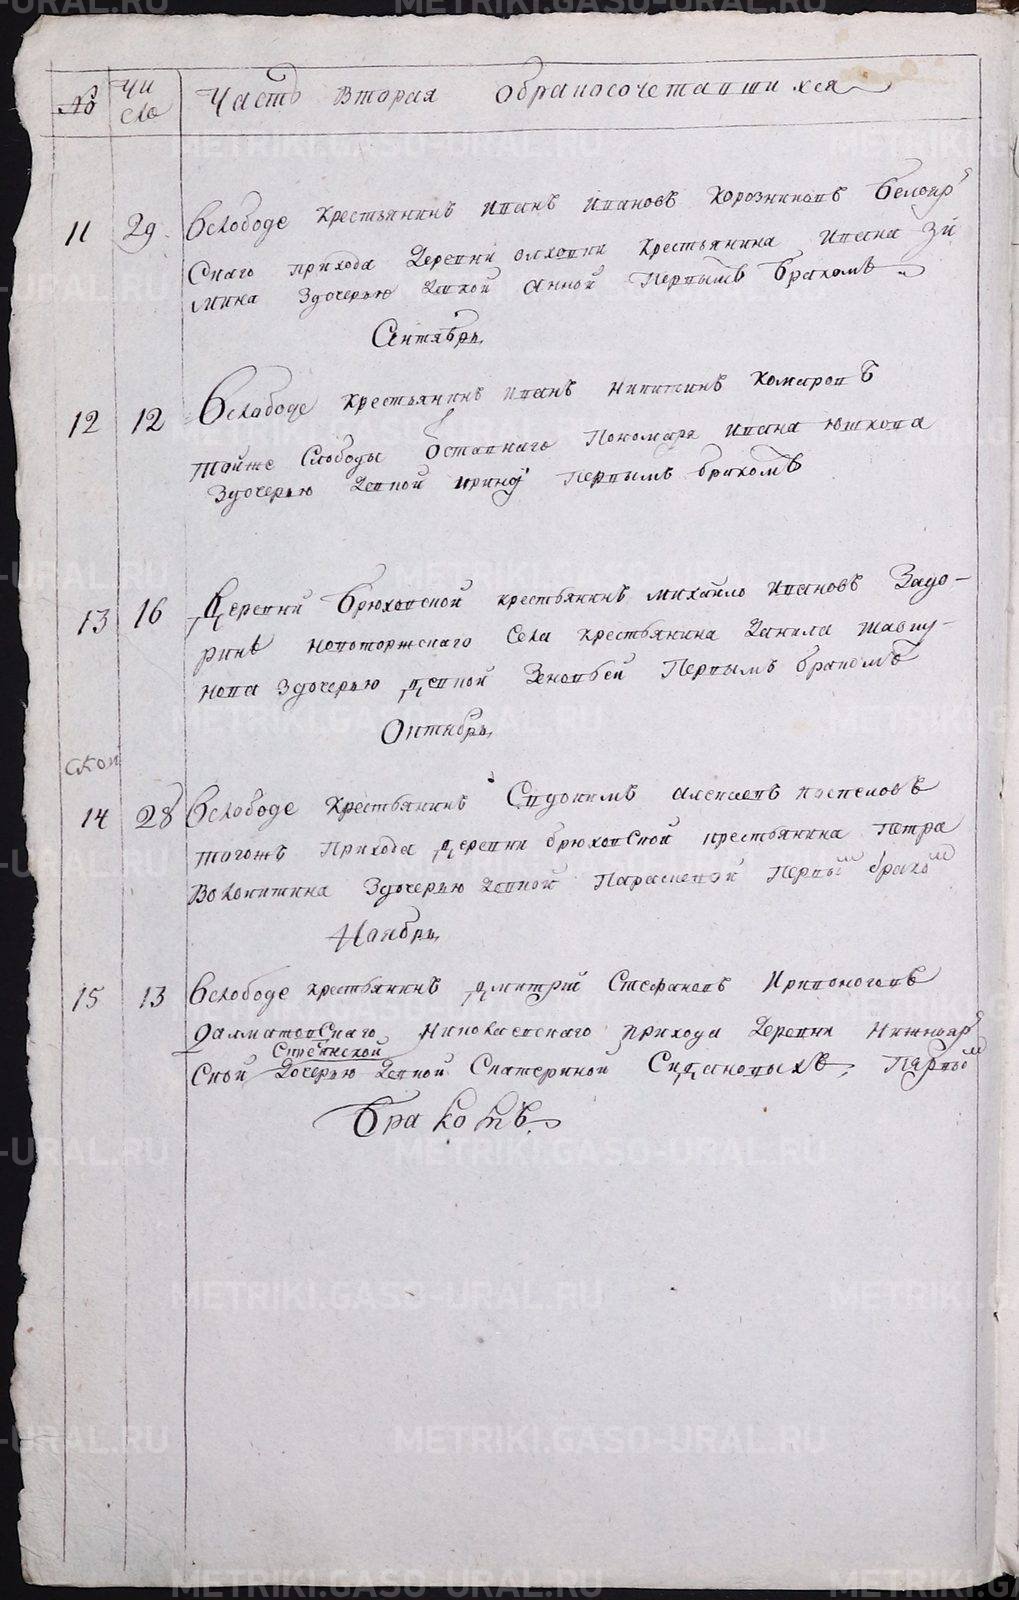 № Чи сло Часть Вторая обракосочетавшихся
11 29 Вслободе крестьянинъ Иванъ Ивановъ Хорозниковъ белояр
скаго прихода деревни олховки крестьянина Ивана Зи
мина Здочерью девкой анной Первымъ бракомъ
Сентябрь
12 12 Вслободе крестьянинъ Иванъ Никитинъ Комаровъ
тойже Слободы Оставнаго Пономаря Ивана Юшкова
Здочерью девкой ириной Первымъ бракомъ
13 16 Деревни Брюховской крестьянинъ михайло Ивановъ Задо-
ринъ новоторжскаго Села крестьянина Данила Шавку-
нова Здочерью девкой Зеновьей Первымъ бракомъ
Октябрь
14 28 Вслободе крестьянинъ Евдокимъ алексеевъ поспеловъ
тогожъ Прихода деревни брюховской крестьянина Петра
Волокитина Здочерью девкой Параскевой Первы бракомъ
Ноябрь
15 13 Вслободе крестьянинъ дмитрий Стефановъ Кривоноговъ
Далматовскаго Николаевскаго прихода деревни Нижнеяр
ской дочерью девкой Екатериной Первы
Бракомъ
METRIKI.GASO-URAL.RU